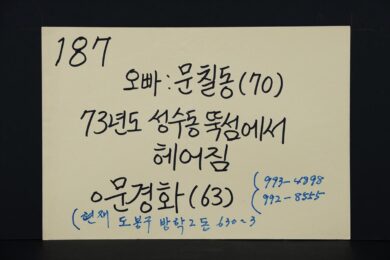 187
오빠:문칠동(70)
73년도 성수동 뚝섬에서
헤어짐
이문경화(63)
993-4898
992-8555
(현재 도봉구 방학2동 630-3